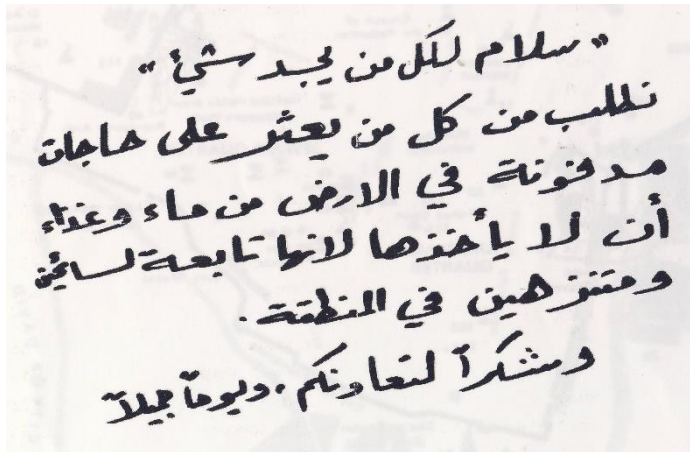 "سلام لكل من يجد شيئ"
نطلب من كل من يعثر على حاجات
مدفونة في الارض من ماء وغذاء
أن لا يأخذها لانها تابعة لسائحين
ومتنزهين في المنطقة.
وشكراً لتعاونكم، ويوماً جميلاً